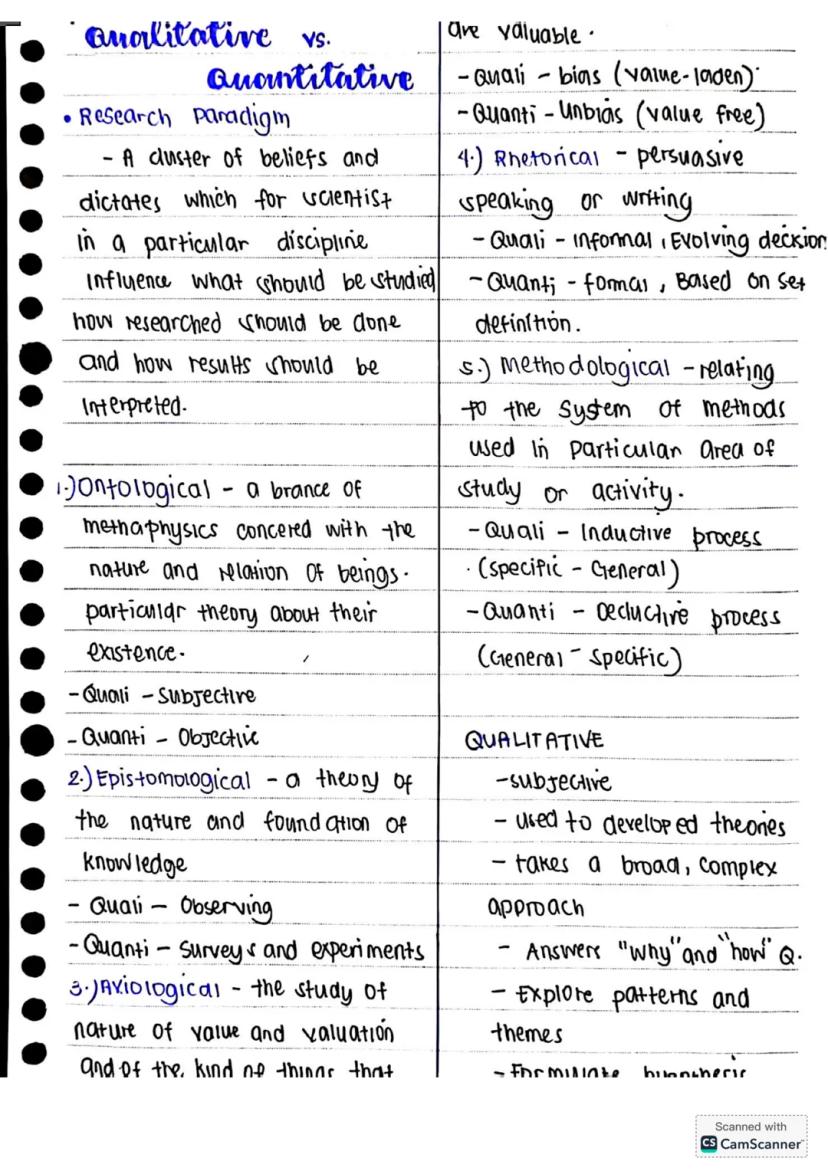 Qualitative vs.
Quantitative
• Research Paradigm
- A cluster of beliefs and
dictates which for scientist
in a particular discipline
influence what should be studied
how researched should be done
and how results should be
interpreted.
1.) Ontological - a brance of
methaphysics concered with the
nature and relation of beings.
particular theory about their
existence.
- Quali - Subjective
- Quanti - Objective
2.) Epistomological - a theory of
the nature and foundation of
knowledge
- Quali - Observing
- Quanti - surveys and experiments
3.) Axiological - the study of
nature of value and valuation
and of the kind of things that
are valuable.
- Quali - bias (value-laden)
- Quanti - Unbias (value free)
4.) Rhetorical - persuasive
speaking or writing
- Quali - informal, Evolving decision
- Quanti - formal, Based on set
definition.
5.) Methodological - relating
to the system of methods
used in particular area of
study or activity.
- Quali - Inductive process
(specific - General)
- Quanti - Deductive process
(General - specific)
QUALITATIVE
- subjective
- used to developed theories
- takes a broad, complex
approach
- Answers "why" and "how" Q.
- Explore patterns and
themes
- Formulate hypothesis
Scanned with
CS CamScanner